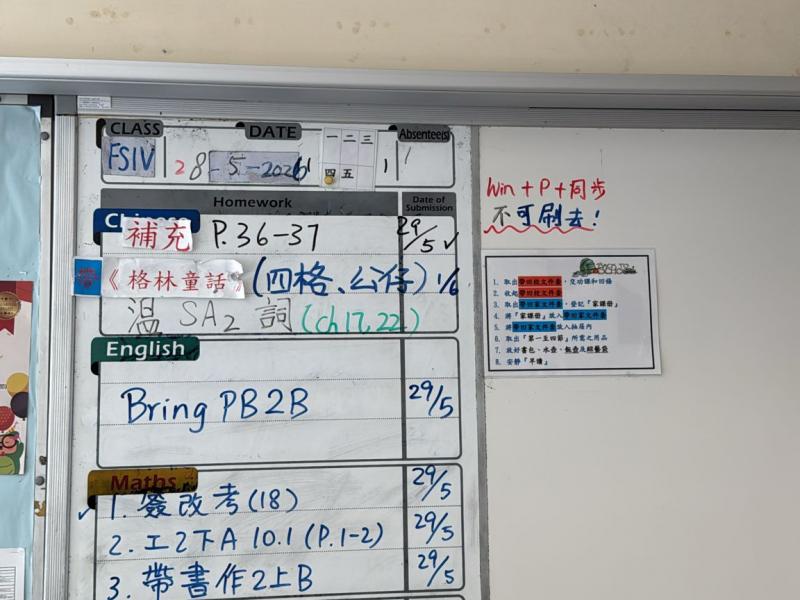 CLASS DATE Absentee(s)
FSIV 28-5-2026 一 二 三 1
四 五
Homework Date of Submission
Chinese
補充 P.36-37 29/5 ✓
帶《格林童話》(四格、公仔) 1/6
溫 SA2 詞 (ch17,22)
English
Bring PB2B 29/5
Maths
✓ 1. 簽改考(18) 29/5
2. 工2下A 10.1 (P.1-2) 29/5
3. 帶書作2上B 29/5
Win + P + 同步
不可刷去!
1. 取出帶回校文件套，交功課和回條
2. 收起帶回校文件套
3. 取出帶回家文件套，登記「家課冊」
4. 將「家課冊」放入帶回家文件套
5. 將帶回家文件套放入抽屜內
6. 取出「第一至四節」所需之用品
7. 放好書包、水壺、
8. 安靜「早讀」